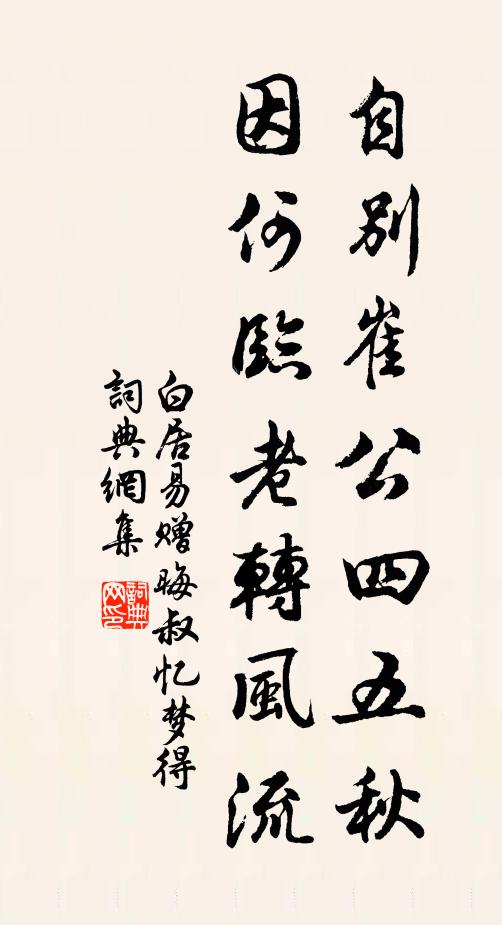 自別崔公四五秋
因何臨老轉風流
白居易赠晦叔忆梦得
詞典網集
詞典網印